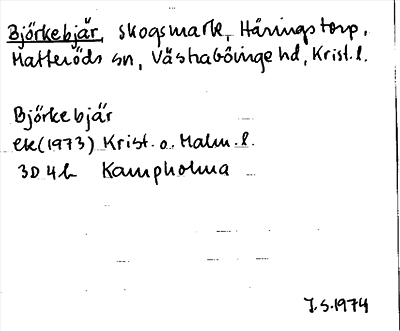 Björkebjär, skogsmark, Håringstorp,
Matteröds sn, Västra Göinge hd, Krist. l.
Björkebjär
ek (1973) Krist. o. Malm. l.
3D 4h Kampholma
J.S. 1974